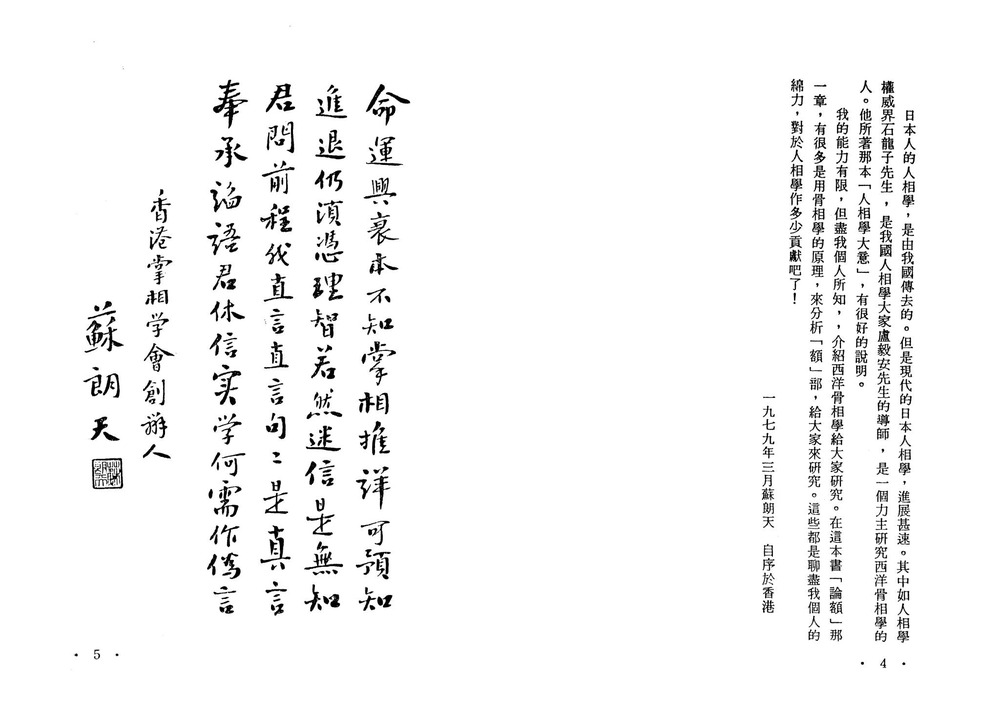 日本人的人相學，是由我國傳去的。但是現代的日本人相學，進展甚速。其中如人相學
權威界石龍子先生，是我國人相學大家盧毅安先生的導師，是一個力主研究西洋骨相學的
人。他所著那本「人相學大意」，有很好的說明。
我的能力有限，但盡我個人所知，，介紹西洋骨相學給大家研究。在這本書「論額」那
一章，有很多是用骨相學的原理，來分析「額」部，給大家來研究。這些都是聊盡我個人的
綿力，對於人相學作多少貢獻吧了！
一九七九年三月蘇朗天　自序於香港
• 4 •
命運興衰本不知掌相推詳可預知
進退仍須憑理智若然迷信是無知
君問前程我直言直言句〻是真言
奉承論語君休信实学何需作偽言
香港掌相学會創辦人
蘇朗天
• 5 •